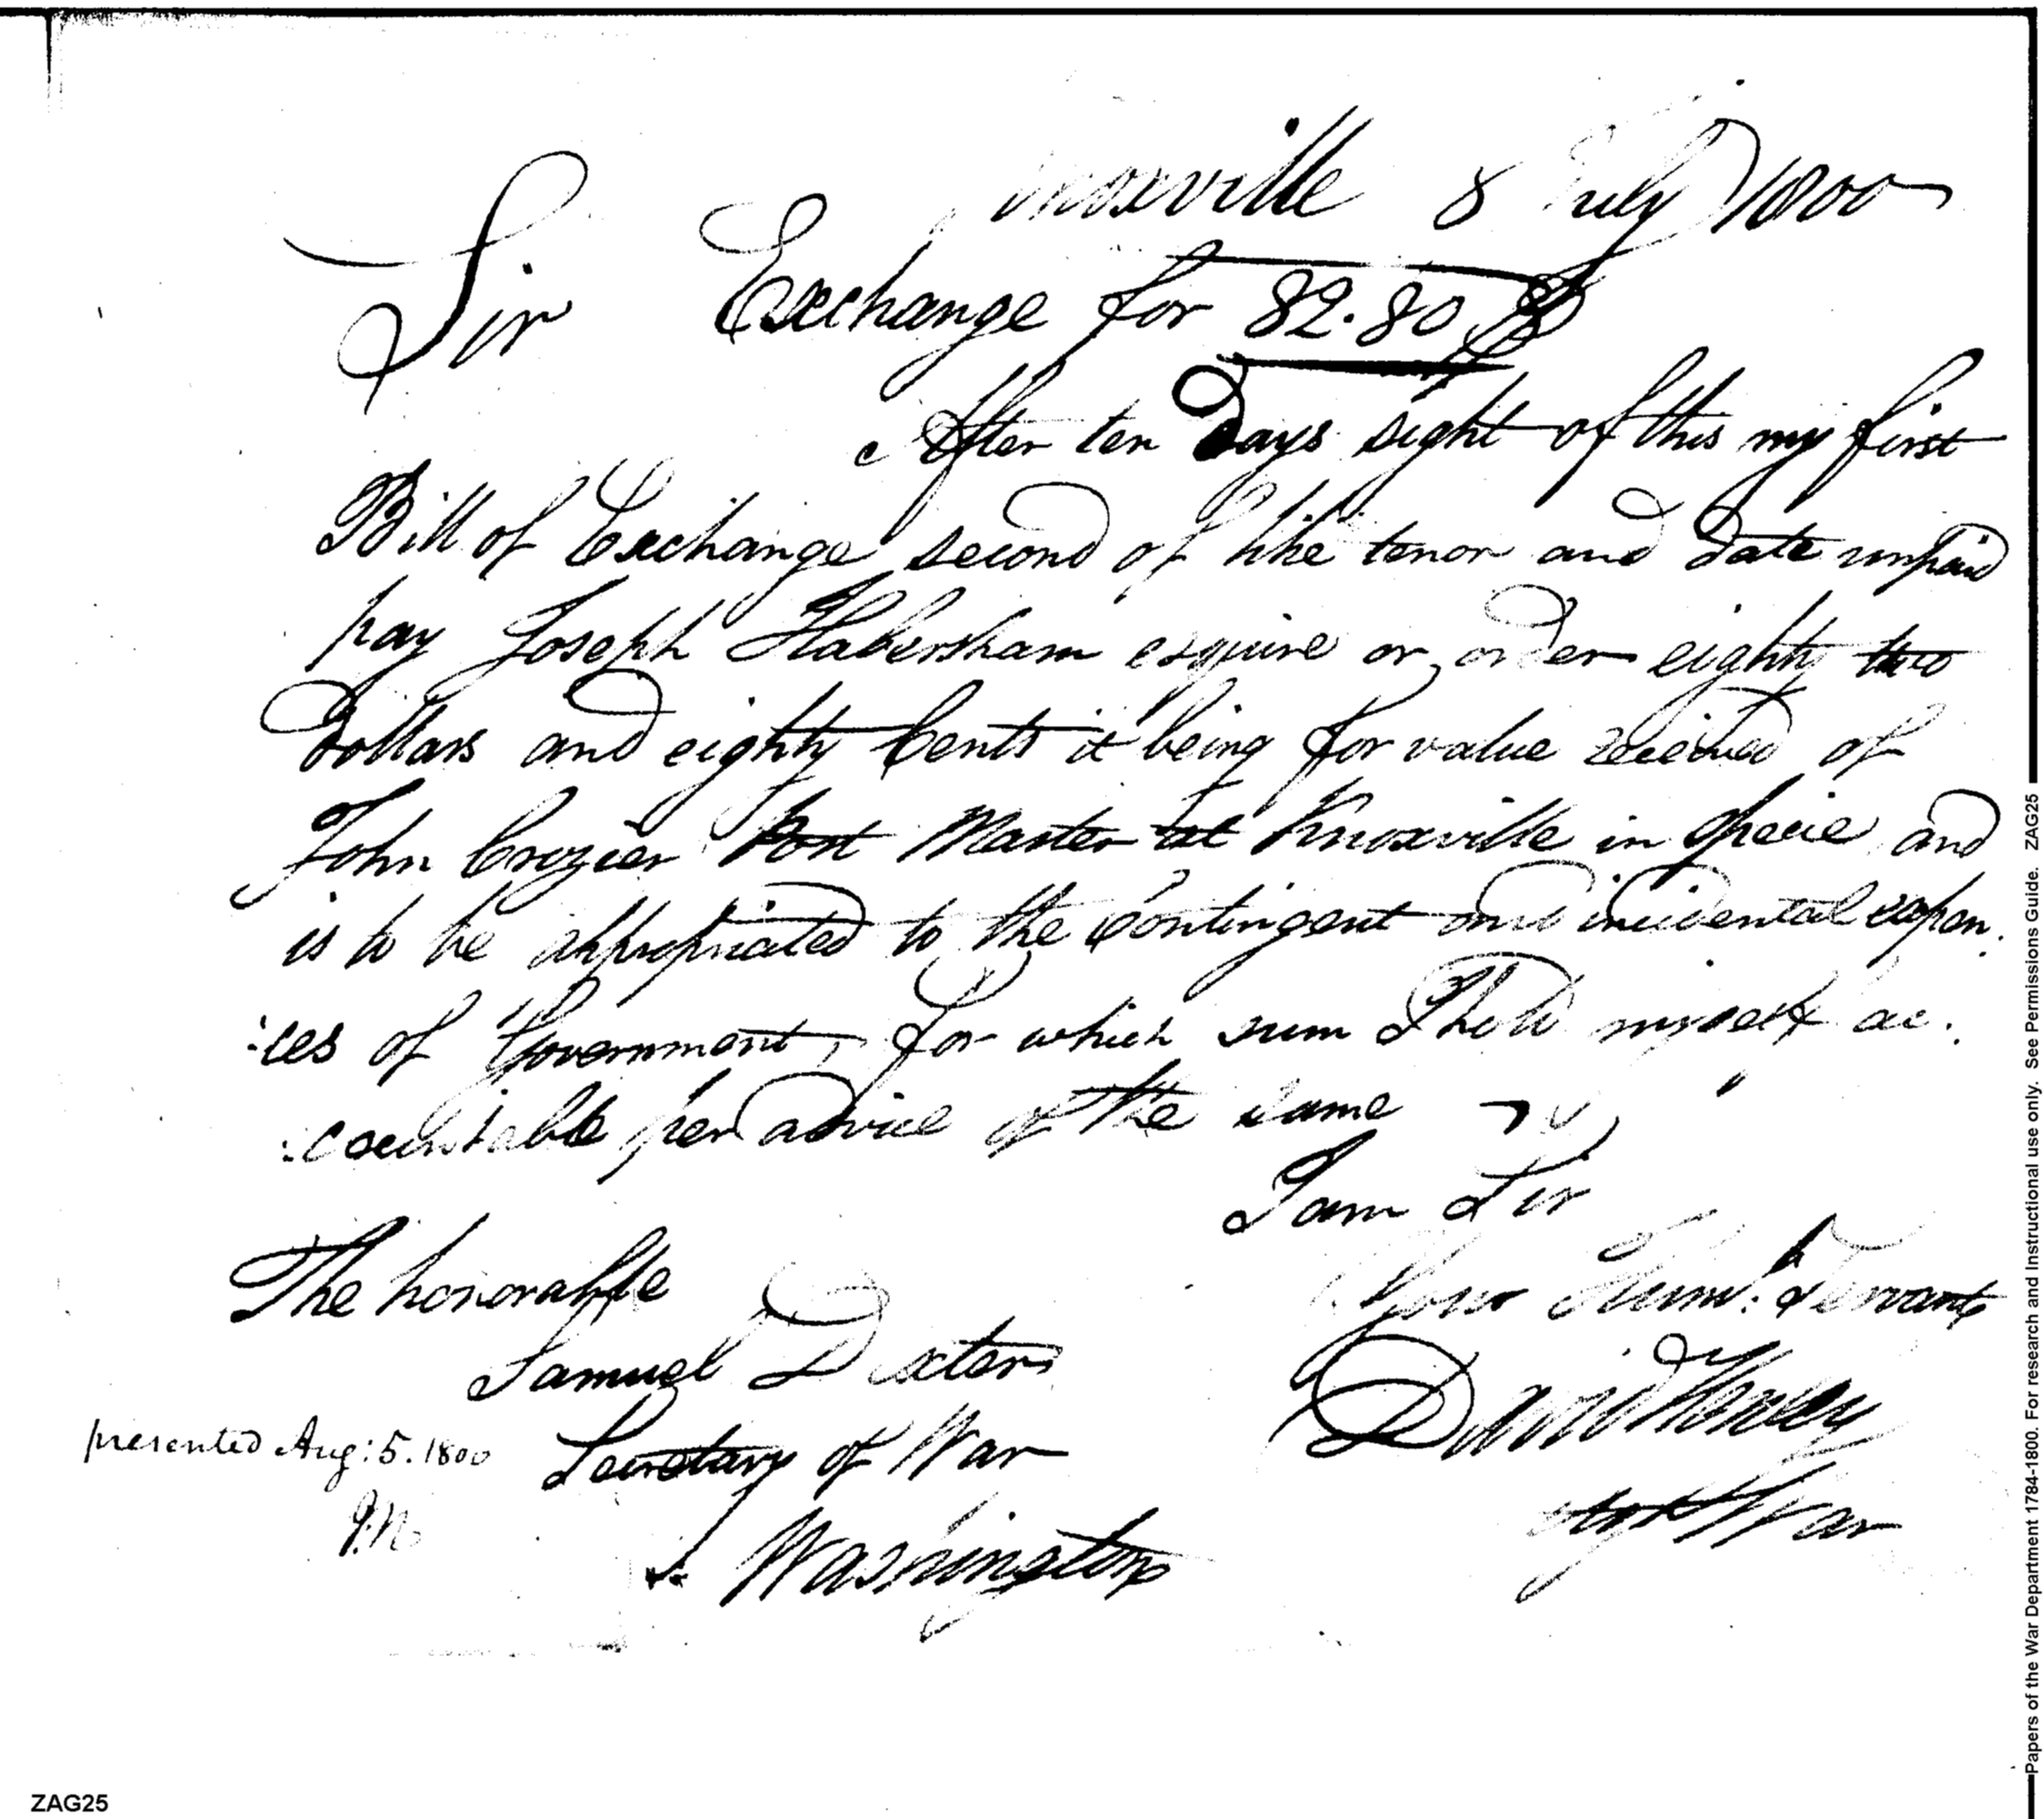 Knoxville 8 July 1800
Sir Exchange for 82.80 D
After ten Days sight of this my first
Bill of Exchange second of like tenor and date unpaid
pay Joseph Habersham esquire or order eighty two
Dollars and eighty Cents it being for value received of
John Crozier Post Master at Knoxville in specie and
is to be appropriated to the Contingent and incidental expen.
:ces of Government, for which sum I hold myself ac.
:countable per advice of the same
I am Sir
Your Humb: Servant
David Henley
agt War
The honorable
Samuel Dexter
Secretary of War
Washington
presented Aug: 5. 1800
Papers of the War Department 1784-1800. For research and Instructional use only. See Permissions Guide. ZAG25
ZAG25